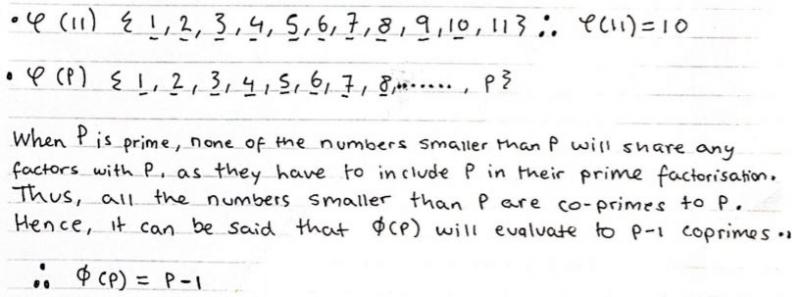 • φ(11) { 1, 2, 3, 4, 5, 6, 7, 8, 9, 10, 11 } ∴ φ(11)=10
• φ(P) { 1, 2, 3, 4, 5, 6, 7, 8, ......, P }
When P is prime, none of the numbers smaller than P will share any
factors with P, as they have to include P in their prime factorisation.
Thus, all the numbers smaller than P are co-primes to P.
Hence, it can be said that ϕ(P) will evaluate to P-1 coprimes..
∴ ϕ(P) = P-1